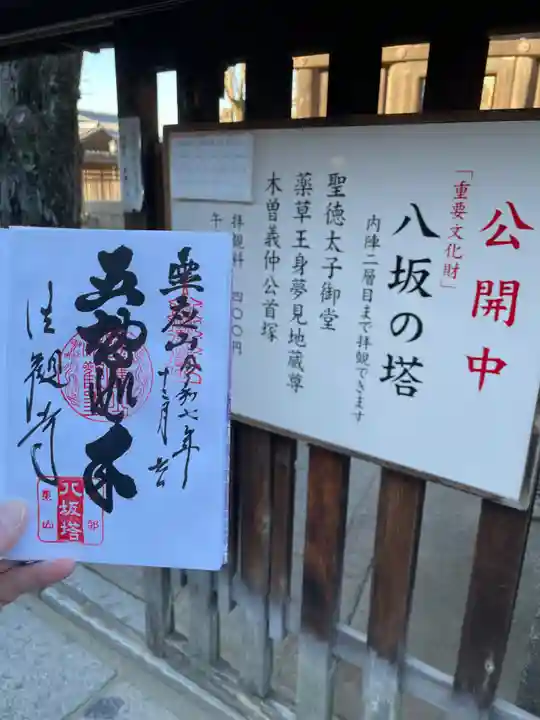 公開中
「重要文化財」
八坂の塔
内陣二層目まで拝観できます
聖徳太子御堂
薬草王身夢見地蔵尊
木曽義仲公首塚
拝観料 四〇〇円
午
霊応山
令和七年
五智如来
法観寺
八坂塔
東山